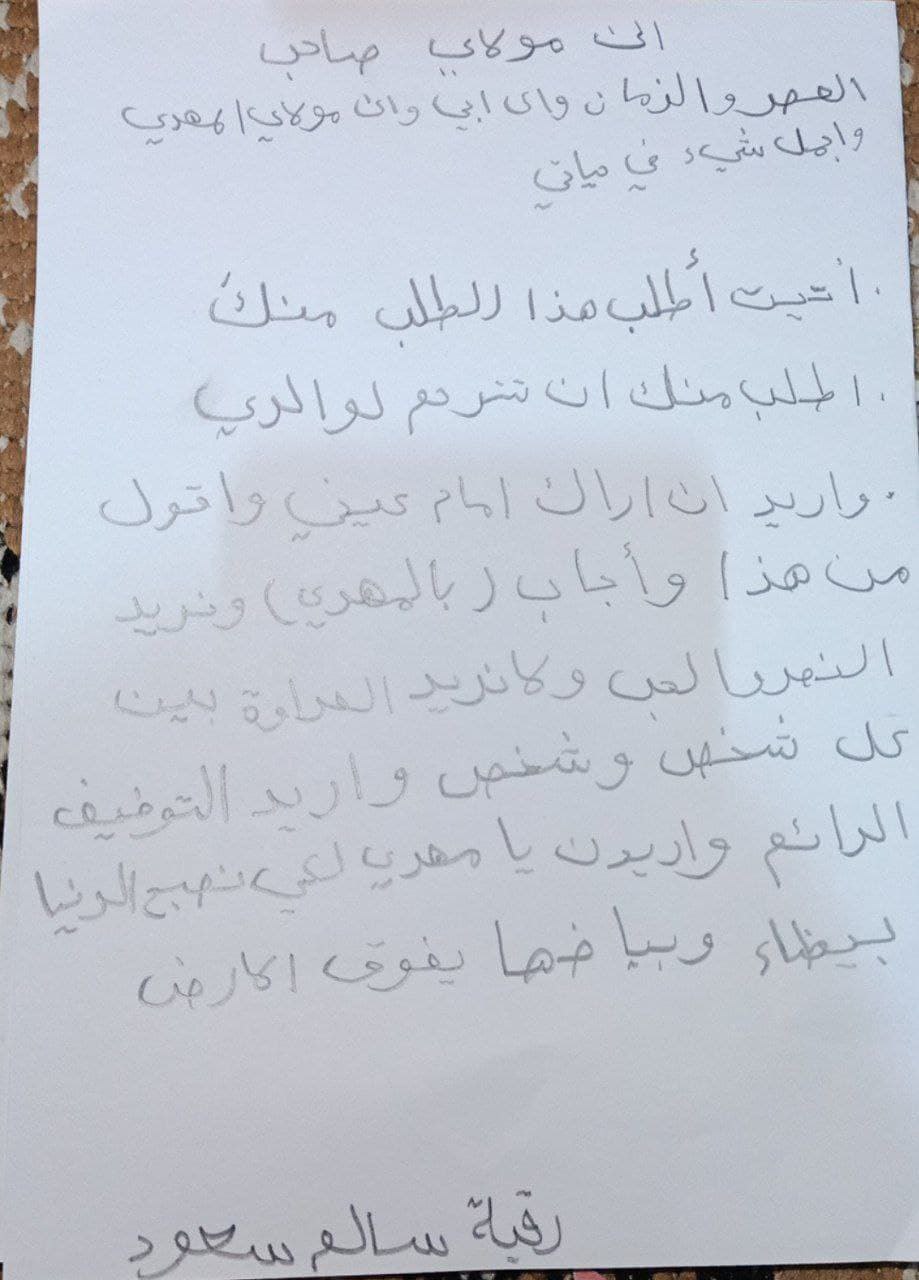 الى مولاي صاحب
العصر والزمان والى ابي والى مولاي المهدي
واجمل شيء في حياتي
. أتيت أطلب هذا الطلب منكَ
. اطلب منك ان تترحم لوالدي
. واريد ان اراك امام عيني واقول
من هذا وأجاب (بالمهدي) ونريد
النصر والحب ولا نريد العداوة بين
كل شخص وشخص واريد التوضيف
الرائع واريدك يا مهدي لكي تصبح الدنيا
بيظاء وبياضها يفوق الارض
رقية سالم سعود